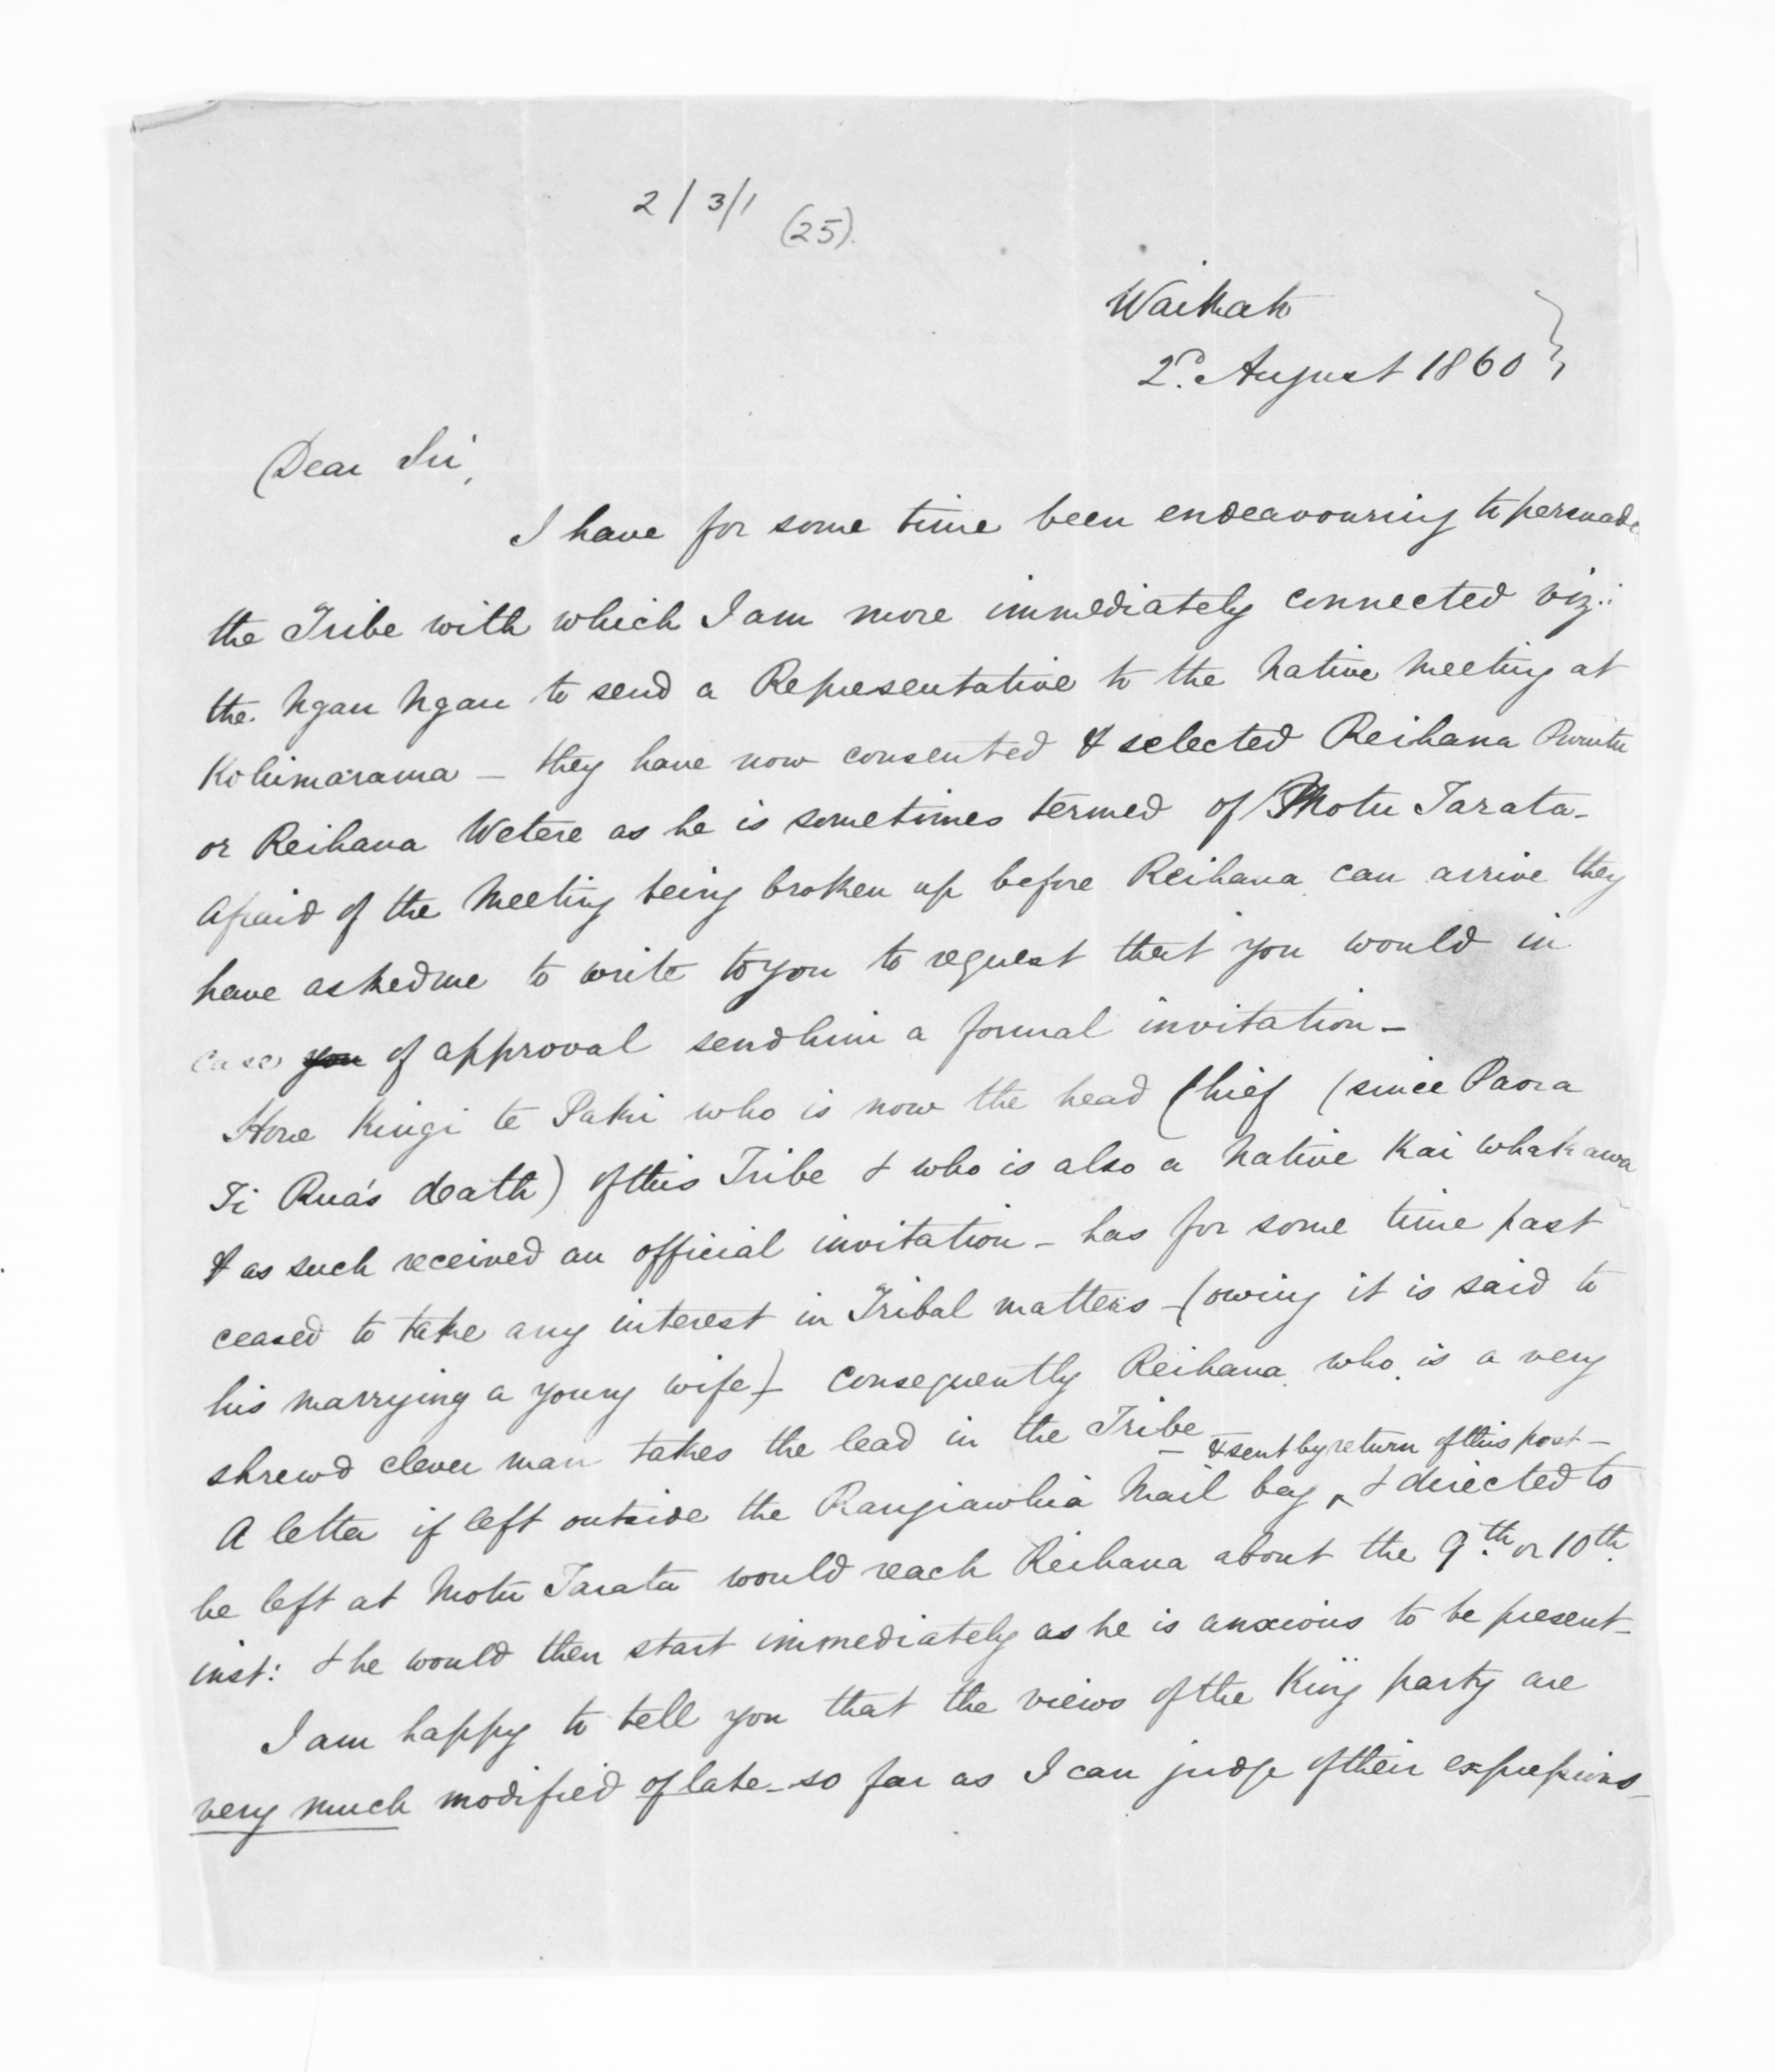 2/3/1
(25).
Waikato
2d. August 1860
Dear Sir,
I have for some time been endeavouring to persuade
the Tribe with which I am more immediately connected viz:
the Ngau Ngau to send a Representative to the Native Meeting at
Kohimarama - they have now consented & selected Reihana
or Reihana Wetere as he is sometimes termed of Motu Tarata -
Afraid of the Meeting being broken up before Reihana can arrive they
have asked me to write to you to request that you would in
case you of approval send him a formal invitation -
Hone Kingi te Paki who is now the head Chief (since Paora
Ti Rua's death) of this Tribe & who is also a Native Kai whakawa
& as such received an official invitation - has for some time past
ceased to take any interest in Tribal matters - (owing it is said to
his marrying a young wife) - consequently Reihana who is a very
shrewd clever man takes the lead in the Tribe -
& sent by return of this post -
A letter if left outside the Rangiawhia Mail bag ^ & directed to
be left at Motu Tarata would reach Reihana about the 9th. or 10th.
inst: & he would then start immediately as he is anxious to be present -
I am happy to tell you that the views of the King party are
very much modified of late - so far as I can judge of their expressions -